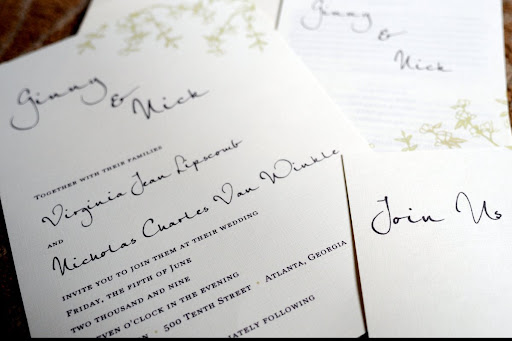 Ginny
&
Nick
TOGETHER WITH THEIR FAMILIES
Virginia Jean Lipscomb
AND
Nicholas Charles Van Winkle
INVITE YOU TO JOIN THEM AT THEIR WEDDING
FRIDAY, THE FIFTH OF JUNE
TWO THOUSAND AND NINE
O'CLOCK IN THE EVENING
500 TENTH STREET · ATLANTA, GEORGIA
FOLLOWING
Ginny
&
Nick
Join Us